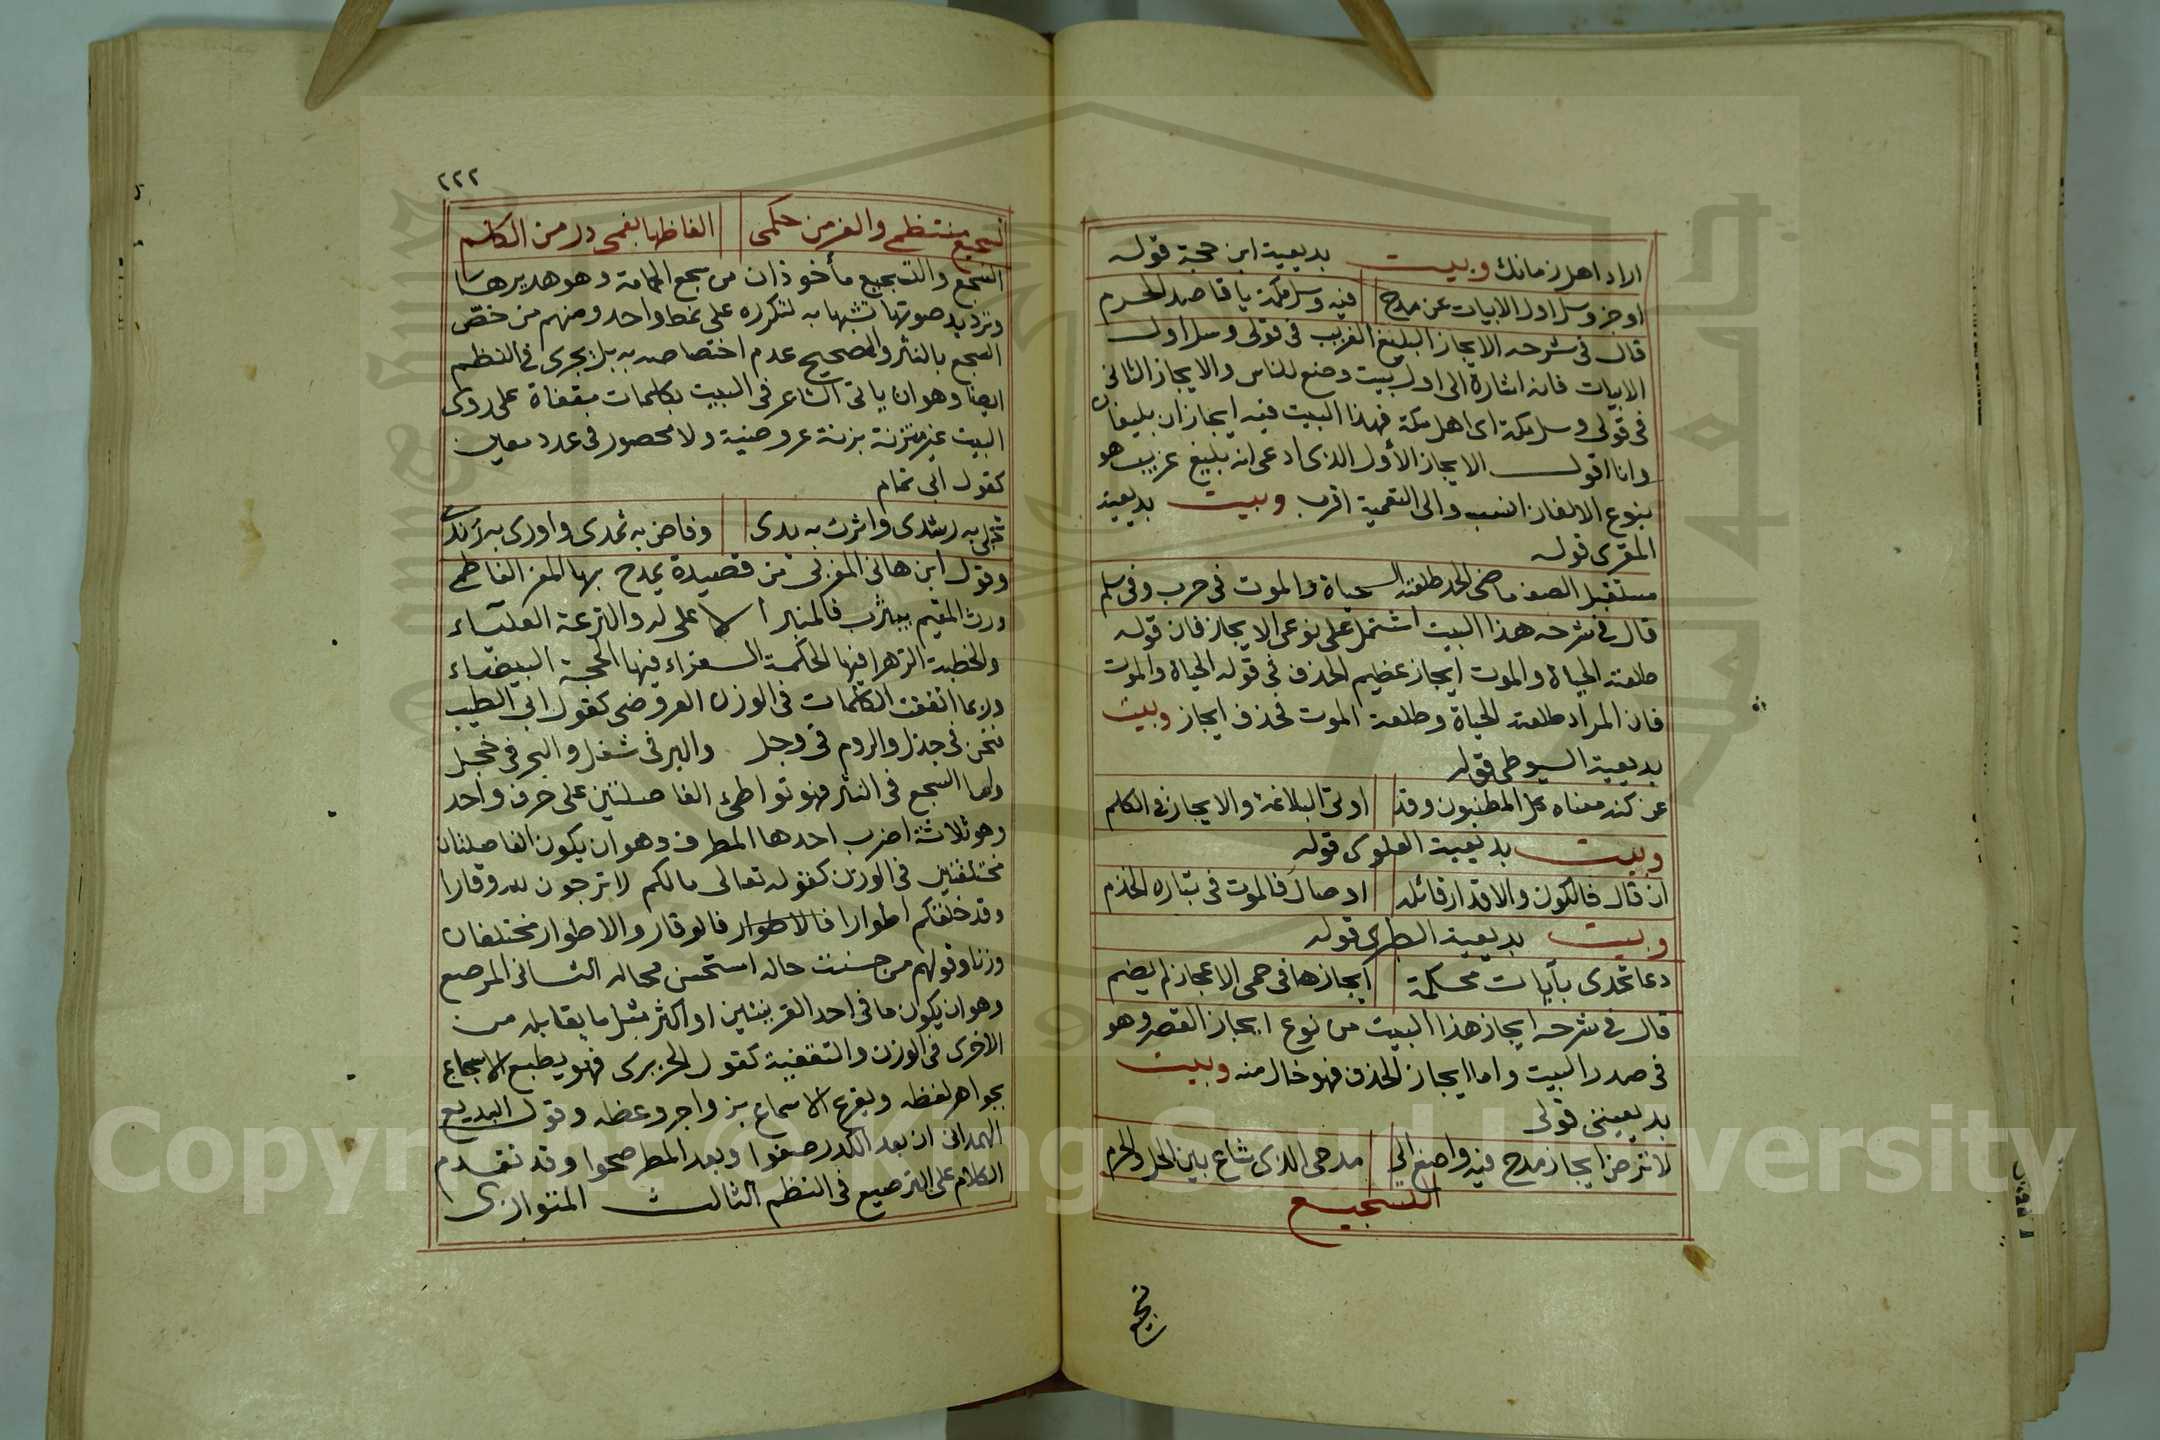 اراد اهل زمانك وبيت بديعية ابن حجة قوله
اوجز وسل اول الابيات عن مدح فيه وسل مكة يا قاصد الحرم
قال في شرحه الايجاز البليغ الغريب في قولي وسل اول
الابيات فانه اشارة الى اول بيت وضع للناس والايجاز الثاني
في قولي وسل مكة اى اهل مكة فهذا البيت فيه ايجازان بليغان
وانا اقول الايجاز الأول الذى ادعى انه بليغ غريب هو
بنوع الالغاز انسب والى التعمية اقرب وبيت بديعية
المقرى قوله
مستقبل الصف ماضى الحد طلعته الحياة والموت في حرب وفي سلم
قال في شرحه هذا البيت اشتمل على نوعى الايجاز فان قوله
طلعته الحياة والموت ايجاز عظيم الحذف في قوله الحياة والموت
فان المراد طلعته الحياة وطلعة الموت فحذف ايجاز وبيت
بديعية السيوطى قوله
عن كنه معناه كل المطنبون وقد اوتى البلاغة والايجاز في الكلم
وبيت بديعية العلوى قوله
ان قال فالكون والاقدار قائله او صال فالموت في بتاره الخذم
وبيت بديعية الطبرى قوله
دعا تحدى بآيات محكمة ايجازها في حمى الاعجاز لم يضم
قال في شرحه ايجاز هذا البيت من نوع ايجاز القصر وهو
في صدر البيت واما ايجاز الحذف فهو خال منه وبيت
بديعيتى قولى
لا ترض ايجاز مدح فيه واصغ الي مدحى الذى شاع بين الحل والحرم
التسجيع
تسجيع
٢٢٢
تسجيع منتظمى والغر من حكمى الفاظها بفمى در من الكلم
السجع والتسجيع مأخوذان من سجع الحمامة وهو هديرها
وترديد صوتها تشبها به لتكرره على نمط واحد ومنهم من خصّ
السجع بالنثر والصحيح عدم اختصاصه به بل يجرى في النظم
ايضا وهو ان ياتى الشاعر في البيت بكلمات مقفاة على روى
البيت غير متزنة بزنة عروضية ولا محصور في عدد معين
كقول ابى تمام
تجلى به رشدى واثرت به يدى وفاض به ثمدى واورى به زندى
وقول ابن هانى المغربى من قصيدة يمدح بها المعز الفاطمى
ورث المقيم بيثرب فالمنبر الاعلى له والترعة العلياء
والخطبة الزهرا فيها الحكمة الغراء فيها الحجة البيضاء
وربما اتفقت الكلمات في الوزن العروضى كقول ابى الطيب
فنحن في جذل والروم في وجل والبر في شغل والبحر في خجل
واما السجع في النثر فهو تواطىء الفاصلتين على حرف واحد
وهو ثلاثة اضرب احدها المطرف وهو ان يكون الفاصلتان
مختلفتين في الوزن كقوله تعالى مالكم لا ترجون لله وقارا
وقد خلقكم اطوارا فالاطوار فالوقار والاطوار مختلفان
وزنا وقولهم من حسنت حاله استحسن محاله الثانى المرصع
وهو ان يكون ما في احد القرينتين او اكثر مثل ما يقابله من
الاخرى في الوزن والتقفية كقول الحريرى فهو يطبع الاسجاع
بجواهر لفظه ويقرع الاسماع بزواجر وعظه وقول البديع
الهمدانى ان بعد الكدر صفوا وبعد المطر صحوا وقد تقدم
الكلام على الترصيع في النظم الثالث المتوازى
Copyright © King Saud University